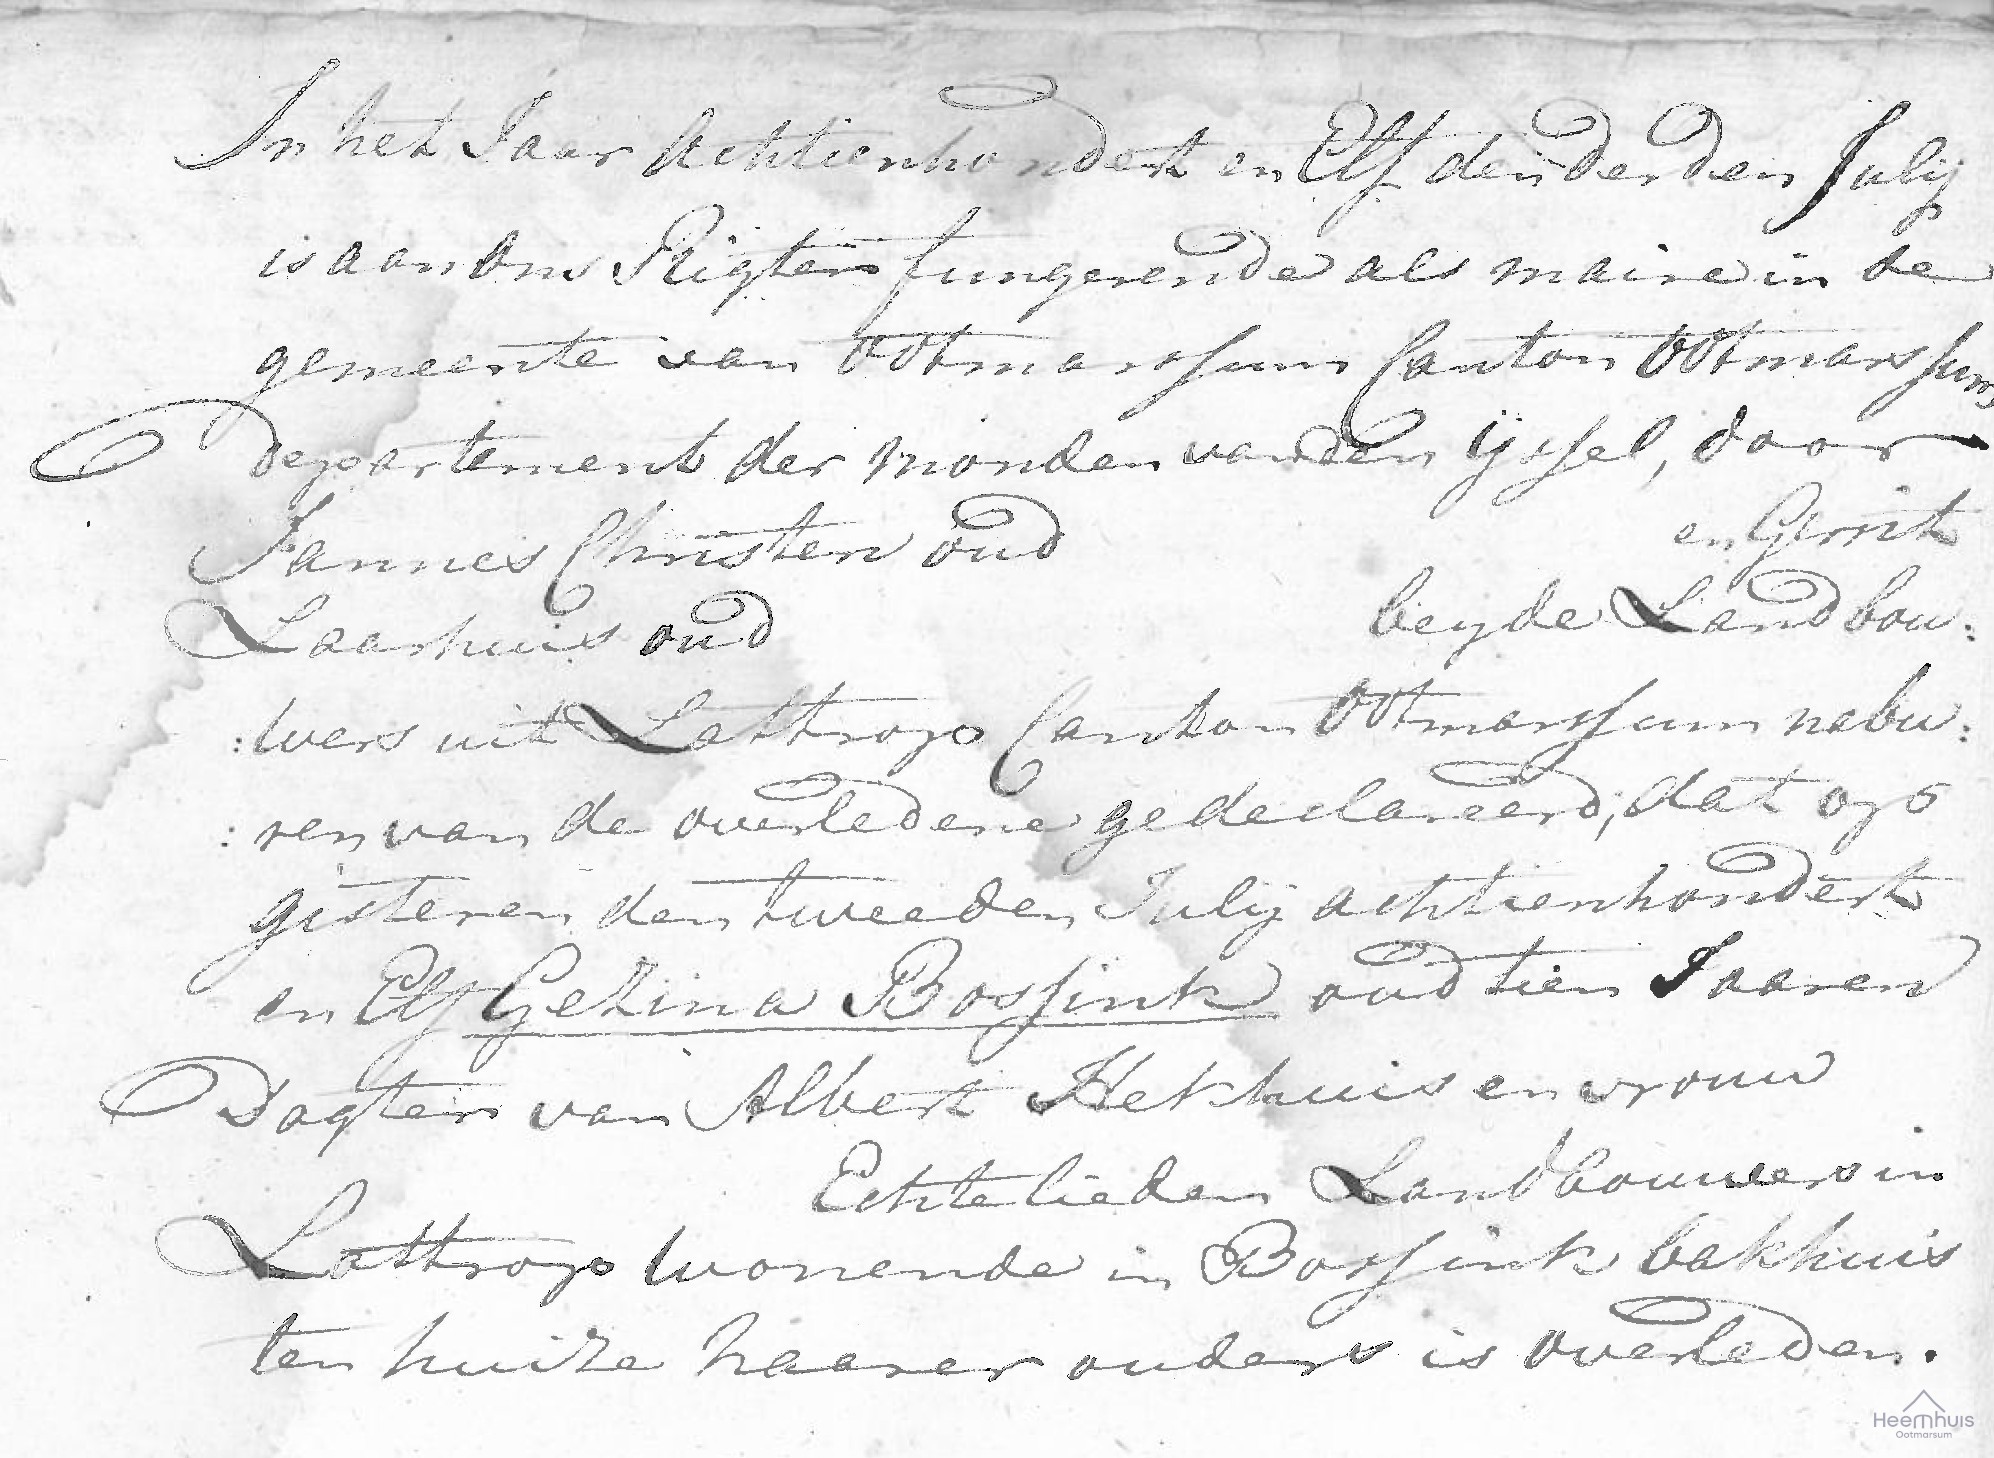 In het Jaar Achtienhondert en Elf den derden Julij
is aan ons Rigter fungerende als maire in de
gemeente van Ootmarssum Canton Ootmarssum,
departement der monden van den ijssel, door
Jannes Christen oud en Gerrit
Laarhuis oud beyde Landbou:
:wers uit Lattrop Canton Ootmarssum nabu:
:ren van de overledene gedeclareerd, dat op
gisteren den tweeden Julij achtienhondert
en Elf Gezina Bossink oud tien Jaaren
Dogter van Albert Hekhuis en vrouw
Echtelieden Landbouwers in
Lattrop wonende in Bossink bakhuis
ten huize haarer ouders is overleden.
Heemhuis
Ootmarsum